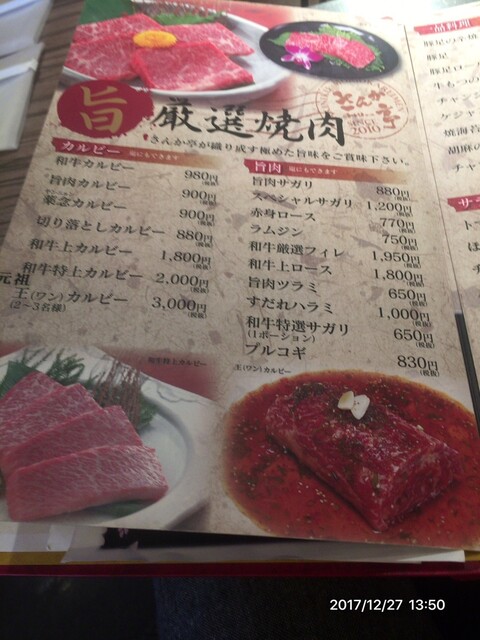 旨
厳選焼肉
さんか亭
SINCE 2010
さんか亭が織り成す極めた旨味をご賞味下さい。
カルビー 塩にもできます
和牛カルビー 980円(税抜)
旨肉カルビー 900円(税抜)
薬念カルビー 900円(税抜)
切り落としカルビー 880円(税抜)
和牛上カルビー 1,800円(税抜)
和牛特上カルビー 2,000円(税抜)
元祖
王(ワン)カルビー 3,000円(税抜)
(2~3名様)
旨肉 塩にもできます
旨肉サガリ 880円(税抜)
スペシャルサガリ 1,200円(税抜)
赤身ロース 770円(税抜)
ラムジン 750円(税抜)
和牛厳選フィレ 1,950円(税抜)
和牛上ロース 1,800円(税抜)
旨肉ツラミ 650円(税抜)
すだれハラミ 1,000円(税抜)
和牛特選サガリ 650円(税抜)
(1ポーション)
プルコギ 830円(税抜)
和牛特上カルビー
王(ワン)カルビー
一品料理
豚足の辛焼
豚足
豚足ロー
牛もつの
チャン
ケジャ
焼海苔
胡麻の
チャ
サラ
トラ
は
チ
2017/12/27 13:50